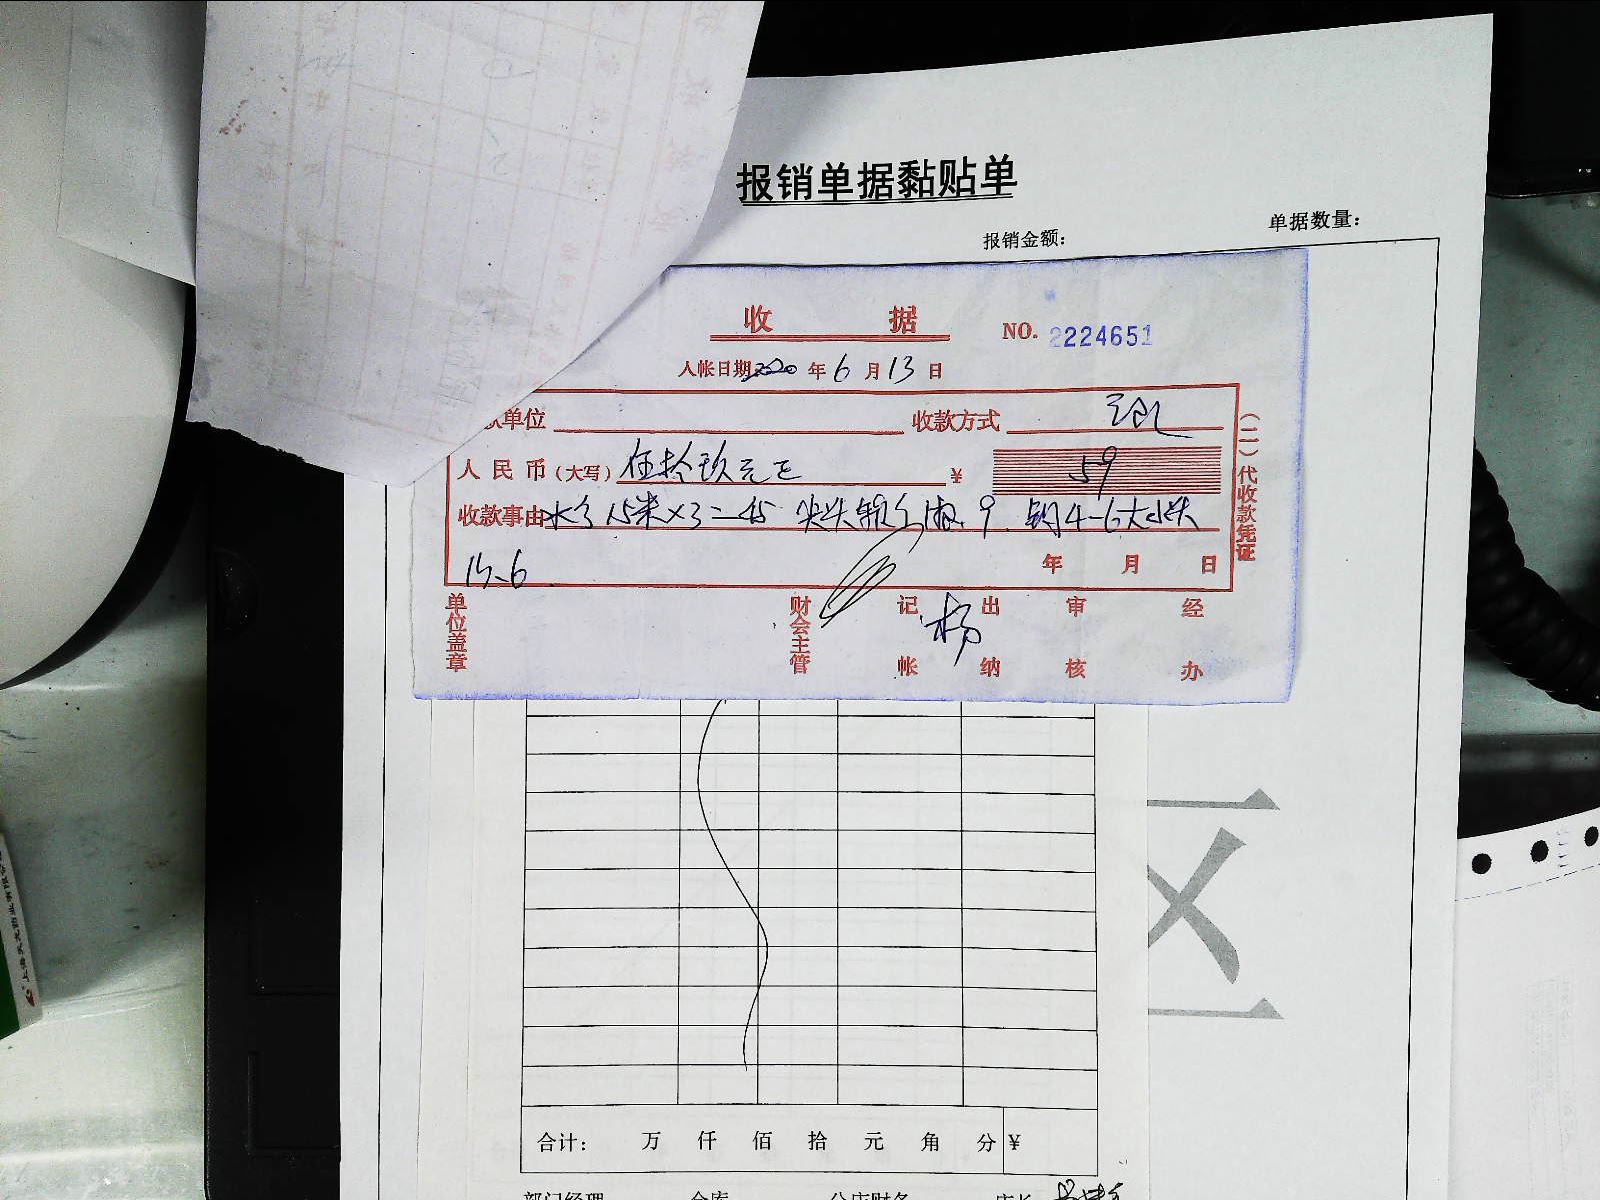 报销单据黏贴单
报销金额： 单据数量：
收 据 NO. 2224651
入帐日期2020年6月13日
款单位 收款方式
人民币(大写) 伍拾玖元正 ¥ 59
收款事由 15米×3=45 9. 4-6大
年 月 日
(二)代收款凭证
单位盖章 财会主管 记帐 杨 出纳 审核 经办
合计： 万 仟 佰 拾 元 角 分 ¥
部门经理